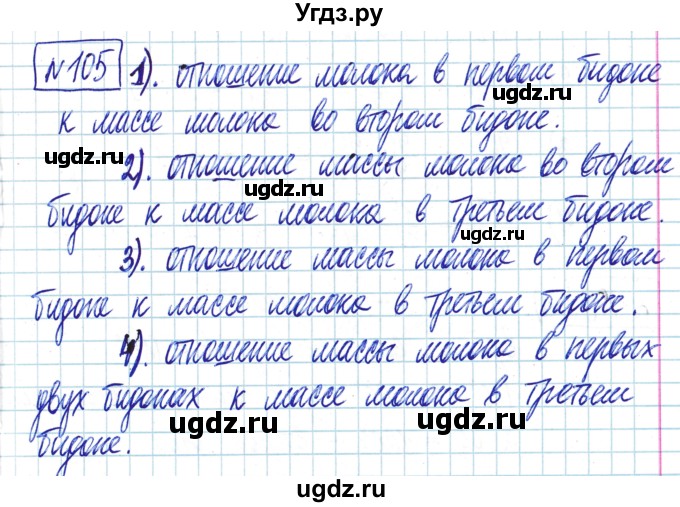 Угдз.ру
№105 1). отношение молока в первом бидоне
ugdz.ru
к массе молока во втором бидоне.
ugdz.ru ugdz.ru
2). отношение массы молока во втором
ugdz.ru
бидоне к массе молока в третьем бидоне.
ugdz.ru
3). отношение массы молока в первом
ugdz.ru
бидоне к массе молока в третьем бидоне.
ugdz.ru
4). отношение массы молока в первых
ugdz.ru
двух бидонах к массе молока в третьем
ugdz.ru ugdz.ru
бидоне.
ugdz.ru